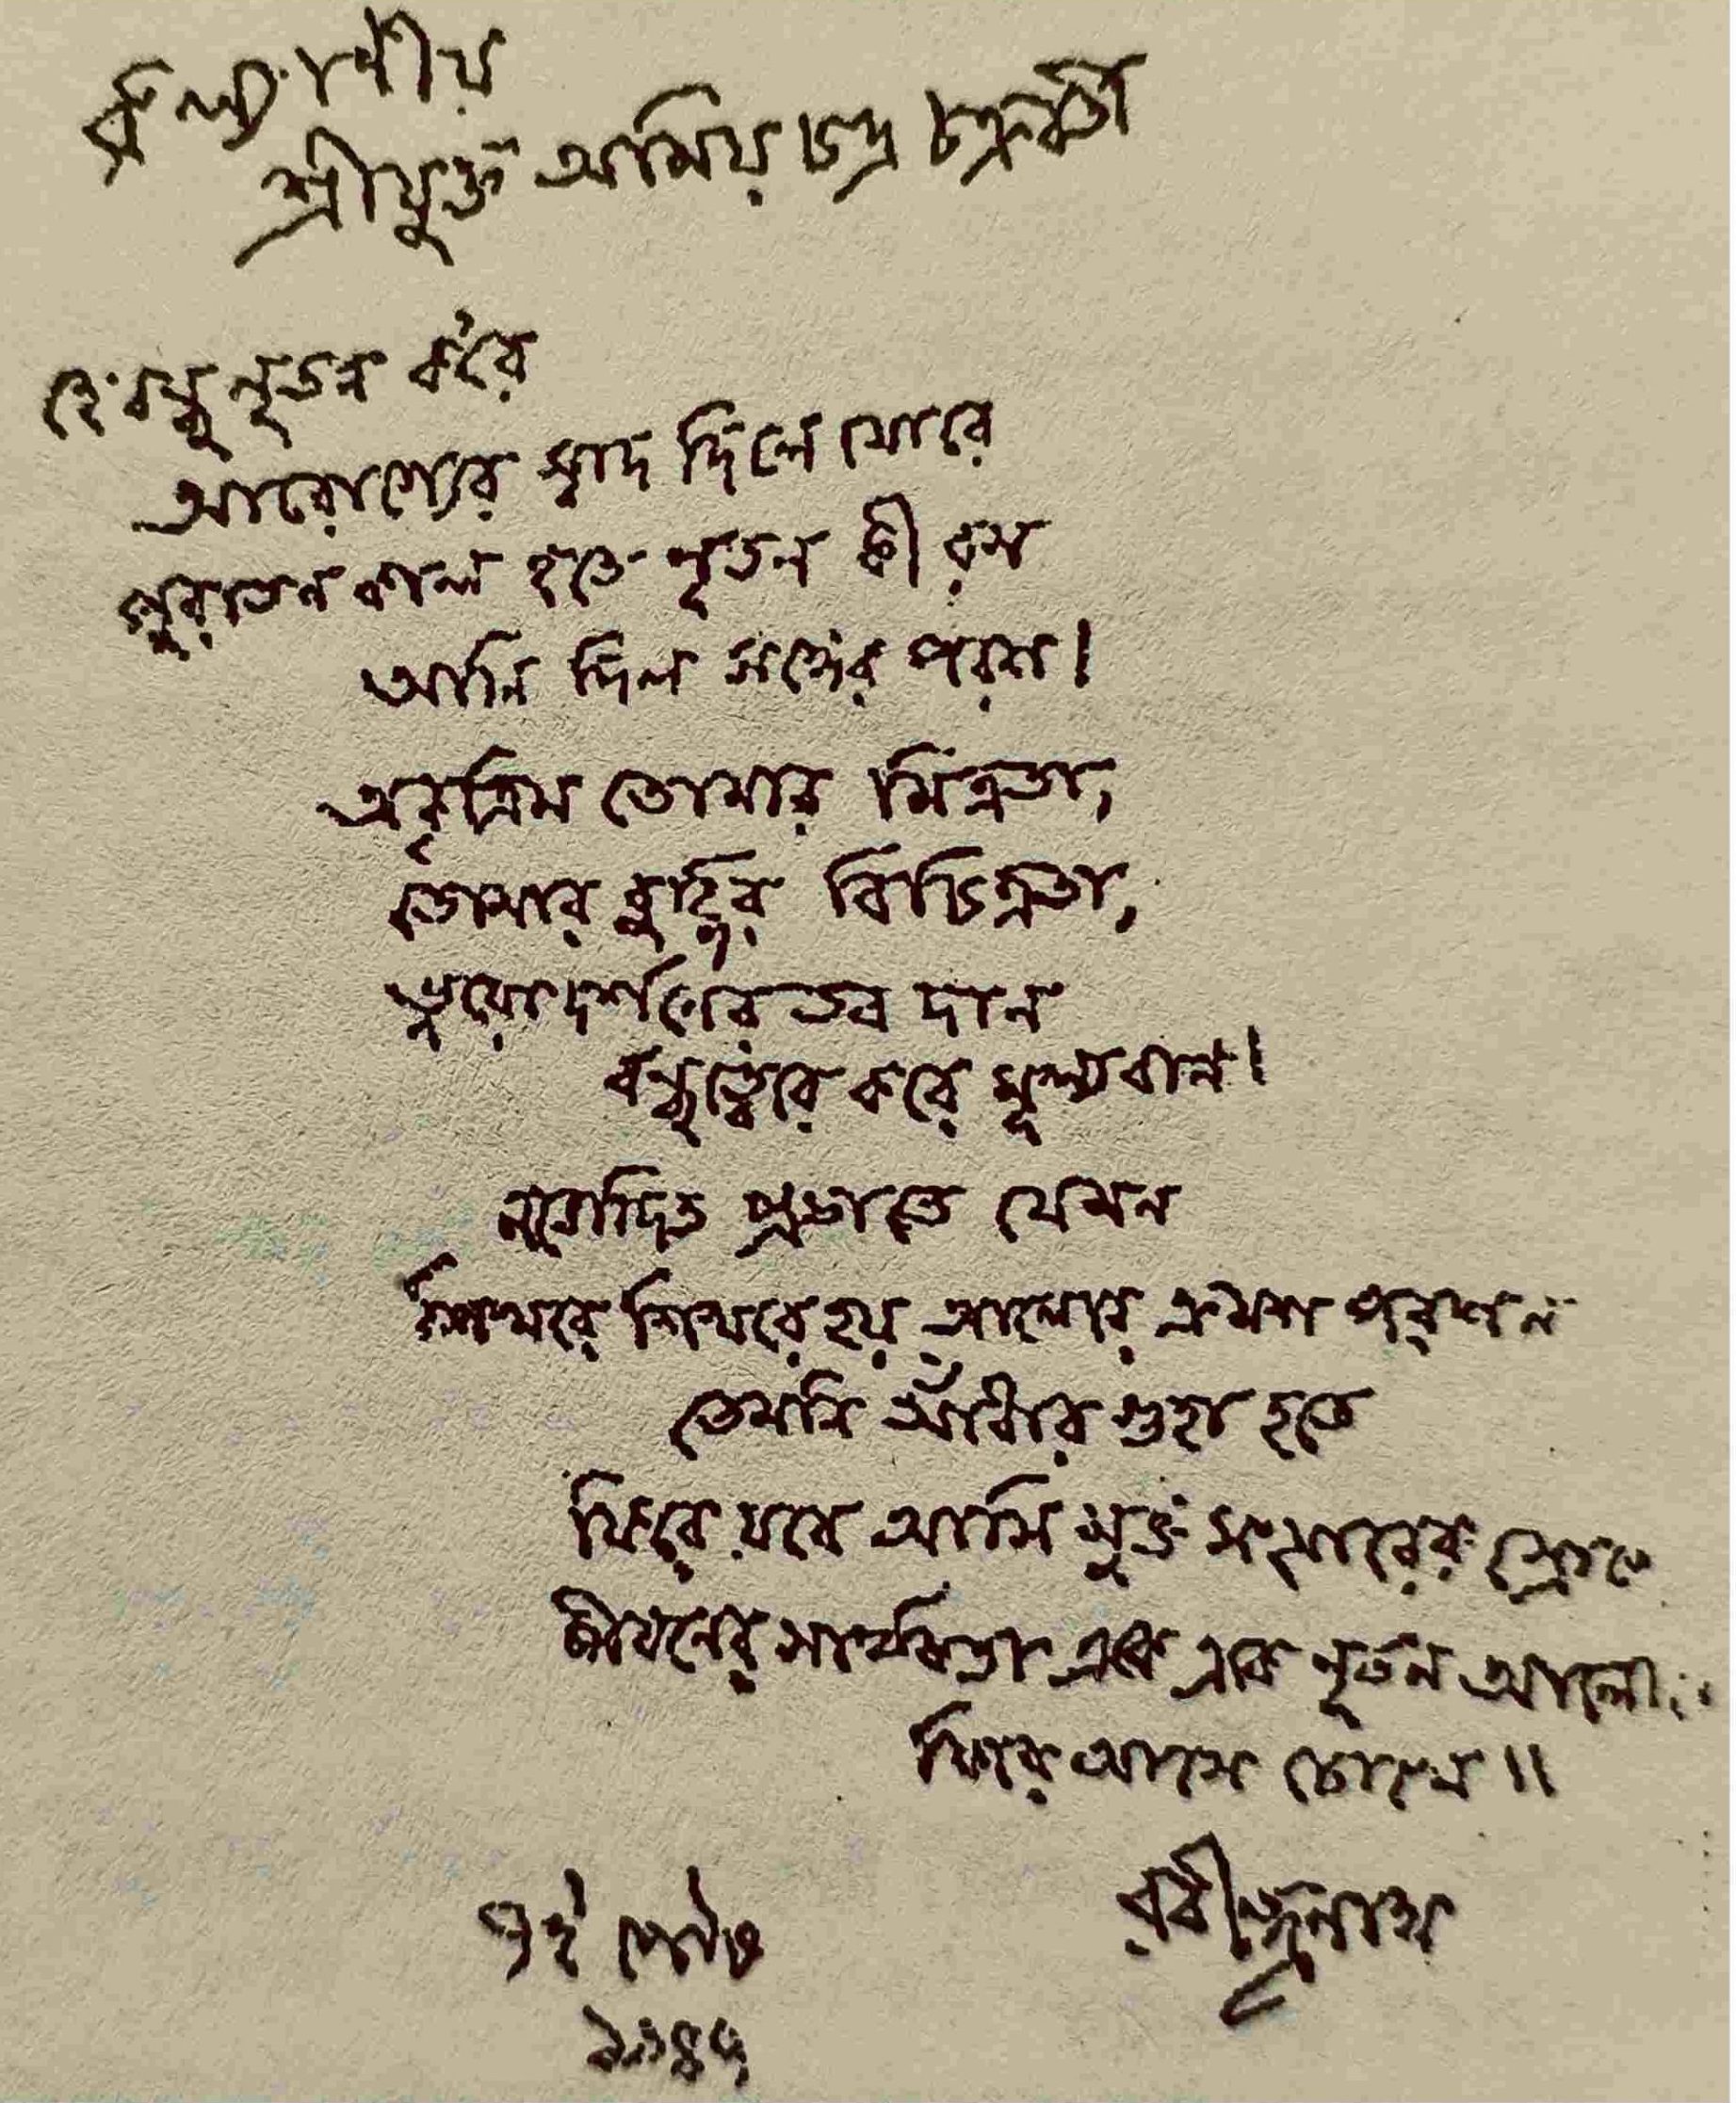 কল্যাণীয়
শ্রীযুক্ত অমিয় চন্দ্র চক্রবর্তী
হে বন্ধু নূতন ক'রে
আরোগ্যের স্বাদ দিলে মোরে
পুরাতন কাল হতে নূতন কী রস
আনি দিল সঙ্গের পরশ।
অকৃত্রিম তোমার মিত্রতা,
তোমার বুদ্ধির বিচিত্রতা,
ভূয়োদর্শনের তব দান
বন্ধুত্বেরে করে মূল্যবান।
নবোদিত প্রভাতে যেমন
শিখরে শিখরে হয় আলোর ক্রমশ পরশন
তেমনি আঁধার গুহা হতে
ফিরে যবে আসি মুক্ত সংসারের স্রোতে
জীবনের সার্থকতা একে একে নূতন আলো
ফিরে আসে চোখে॥
রবীন্দ্রনাথ
৭ই পৌষ
১৩৪৫